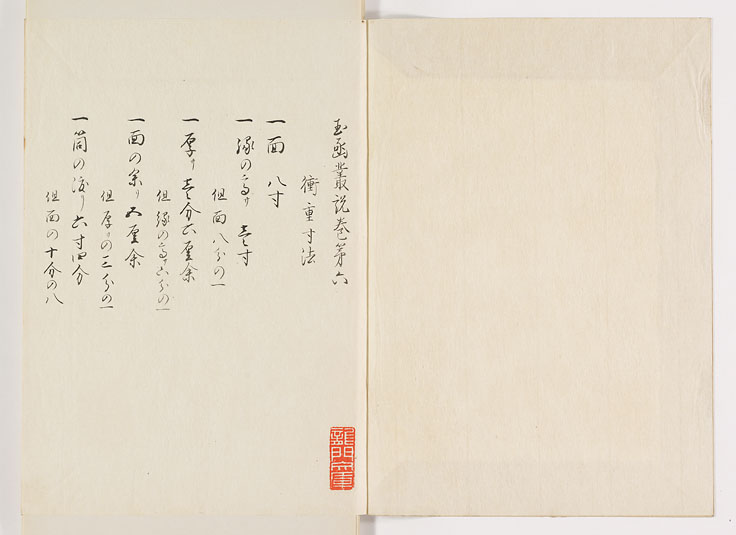 玉函叢説巻第六
衝重寸法
一面 八寸
一縁の高サ 壱寸
但面八分の一
一厚サ 壱分六厘余
但縁の高サ六分の一
一面の余リ 五厘余
但厚サの三分の一
一筒の渡リ 六寸四分
但面の十分の八
龍門文庫